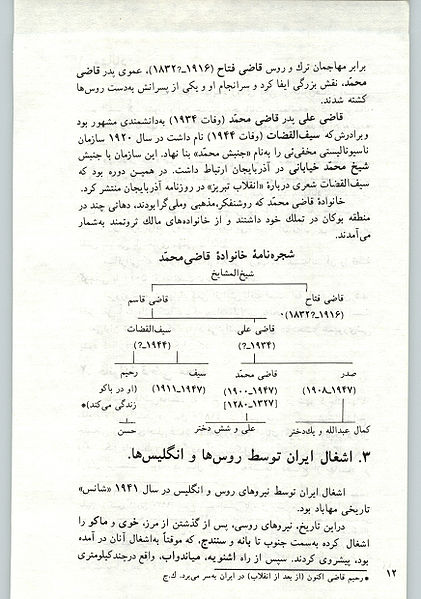 برابر مهاجمان ترك و روس قاضی فتاح (۱۹۱۶_؟۱۸۳۲)، عموی پدر قاضی
محمّد، نقش بزرگی ایفا کرد و سرانجام او و یکی از پسرانش به‌دست روس‌ها
کشته شدند.
قاضی علی پدر قاضی محمّد (وفات ۱۹۳۴) به‌دانشمندی مشهور بود
وبرادرش‌که سیف‌القضات (وفات ۱۹۴۴) نام داشت در سال ۱۹۲۰ سازمان
ناسیونالیستی مخفی‌ئی را به‌نام «جنبش محمّد» بنا نهاد. این سازمان با جنبش
شیخ محمّد خیابانی در آذربایجان ارتباط داشت. در همیـن دوره بود که
سیف‌القضات شعری دربارهٔ «انقلاب تبریز» در روزنامه آذربایجان منتشر کرد.
خانوادهٔ قاضی محمّد که روشنفکر،مذهبی وملی‌گرابودند، دهاتی چند در
منطقه بوکان در تملك خود داشتند و از خانواده‌های مالك ثروتمند به‌شمار
می‌آمدند.
شجره‌نامهٔ خانوادهٔ قاضی‌محمّد
شیخ‌المشایخ
قاضی فتاح قاضی قاسم
(۱۹۱۶_؟۱۸۳۲)
قاضی علی سیف‌القضات
(۱۹۳۴_؟) (۱۹۴۴_؟)
صدر قاضی محمّد سیف رحیم
(۱۹۴۷_۱۹۰۸) (۱۹۴۷_۱۹۰۰) (۱۹۴۷_۱۹۱۱) (او در باکو
[۱۳۲۷_۱۲۸۰] زندگی می‌کند)*
کمال عبدالله و یك‌دختر علی و شش دختر حسن
۳. اشغال ایران توسط روس‌ها و انگلیس‌ها.
اشغال ایران توسط نیروهای روس و انگلیس در سال ۱۹۴۱ «شانس»
تاریخی مهاباد بود.
دراین تاریخ، نیروهای روسی، پس از گذشتن از مرز، خوی و ماکو را
اشغال کرده به‌سمت جنوب تا بانه و سنندج، که موقتاً به‌اشغال آنان در آمده
بود، پیشروی کردند. سپس از راه اشنویه، میاندواب، واقع درچندکیلومتری
* رحیم قاضی اکنون (از بعد از انقلاب) در ایران به‌سر می‌برد. ك.ج
۱۲